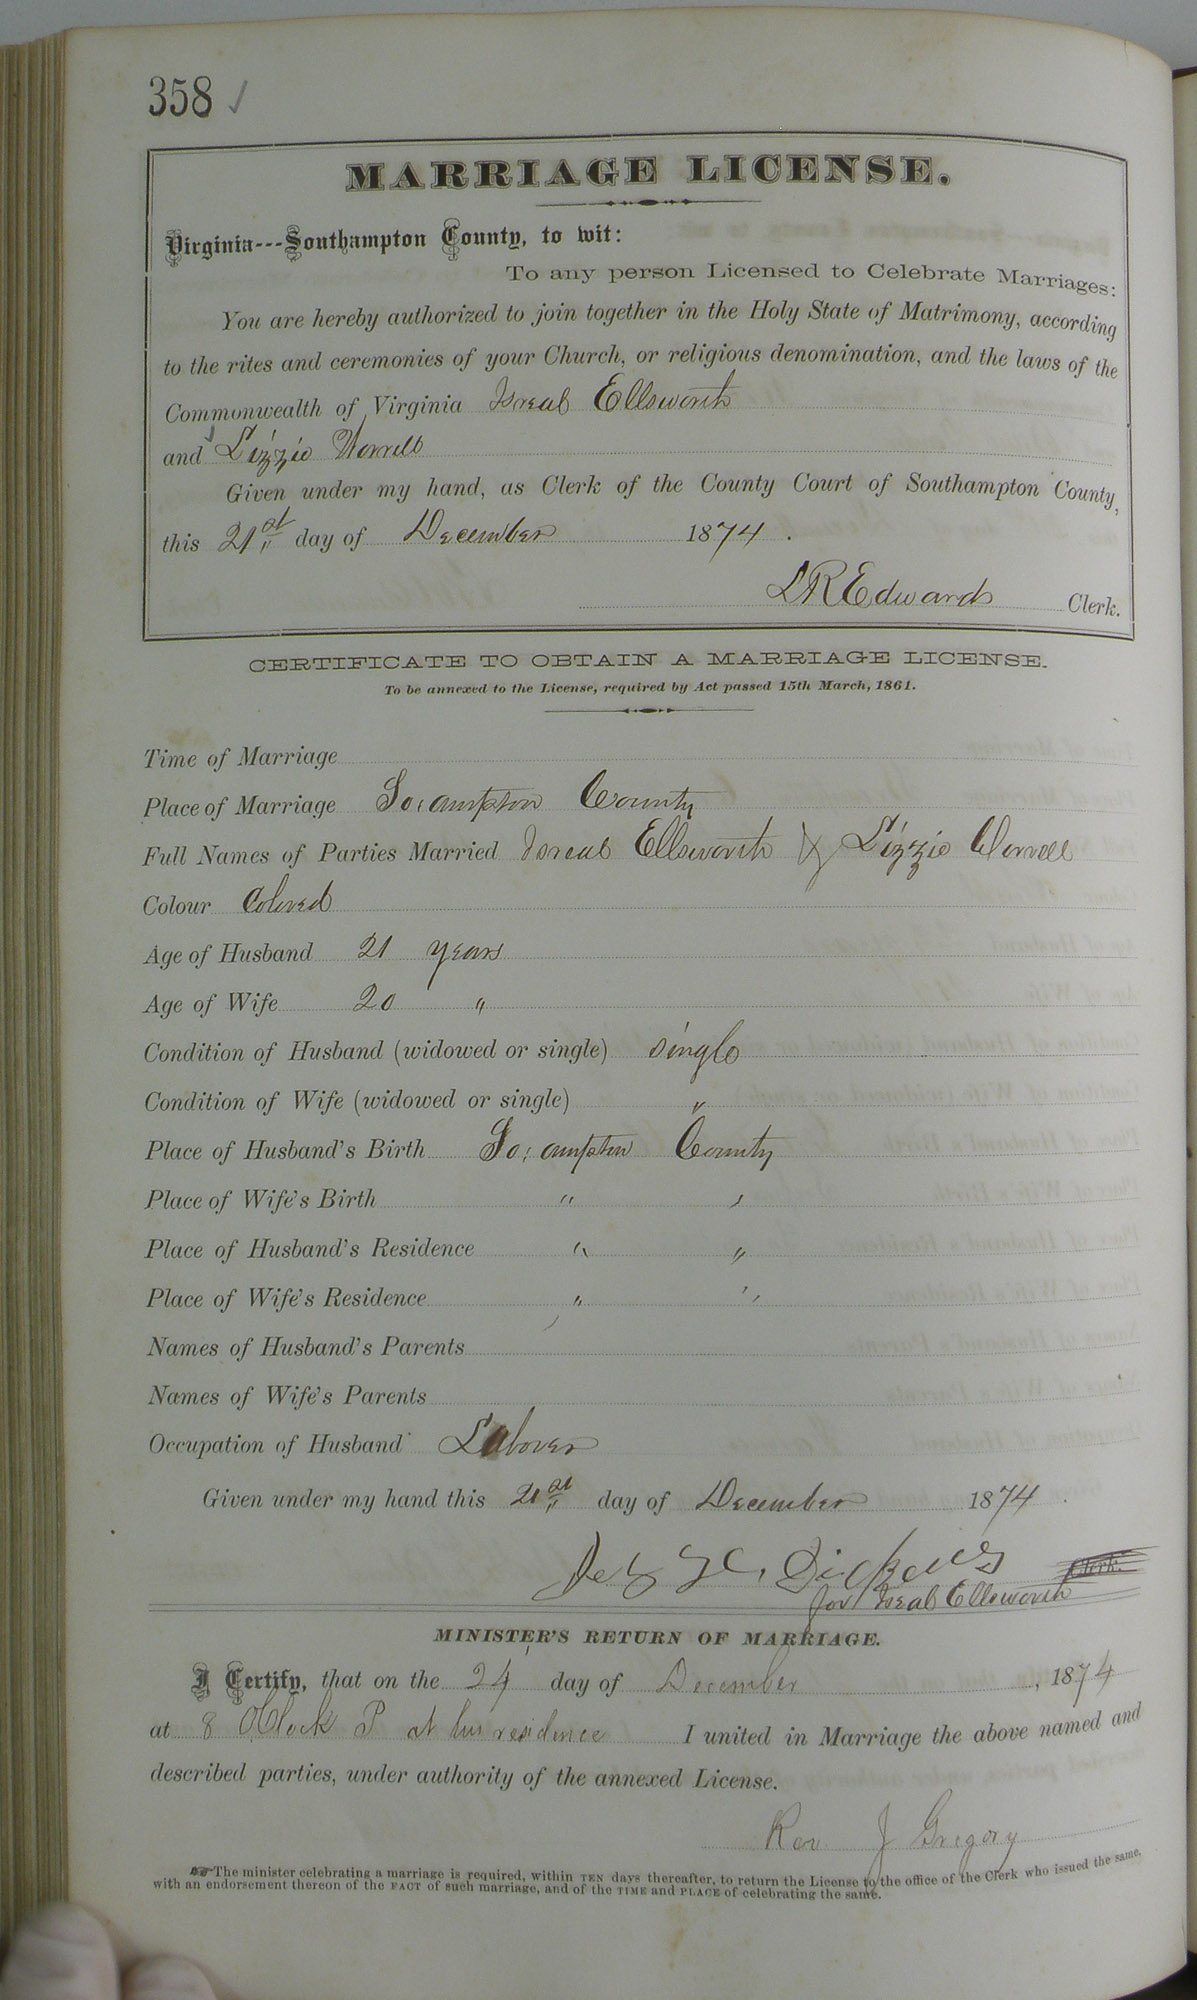 358 ✓
MARRIAGE LICENSE.
Virginia---Southampton County, to wit:
To any person Licensed to Celebrate Marriages:
You are hereby authorized to join together in the Holy State of Matrimony, according
to the rites and ceremonies of your Church, or religious denomination, and the laws of the
Commonwealth of Virginia Isreal Ellsworth
and Lizzie Worrell
Given under my hand, as Clerk of the County Court of Southampton County,
this 21st day of December 1874.
L R Edwards Clerk.
CERTIFICATE TO OBTAIN A MARRIAGE LICENSE.
To be annexed to the License, required by Act passed 15th March, 1861.
Time of Marriage
Place of Marriage So: ampton County
Full Names of Parties Married Isreal Ellsworth & Lizzie Worrell
Colour Colored
Age of Husband 21 years
Age of Wife 20 "
Condition of Husband (widowed or single) single
Condition of Wife (widowed or single) "
Place of Husband's Birth So: ampton County
Place of Wife's Birth " "
Place of Husband's Residence " "
Place of Wife's Residence " "
Names of Husband's Parents
Names of Wife's Parents
Occupation of Husband Laborer
Given under my hand this 21st day of December 1874.
Dickens Clerk.
for Isreal Ellsworth
MINISTER'S RETURN OF MARRIAGE.
I Certify, that on the 24 day of December, 1874
at 8 OClock P at his residence I united in Marriage the above named and
described parties, under authority of the annexed License.
Rev. J Gregory
☞ The minister celebrating a marriage is required, within TEN days thereafter, to return the License to the office of the Clerk who issued the same,
with an endorsement thereon of the FACT of such marriage, and of the TIME and PLACE of celebrating the same.